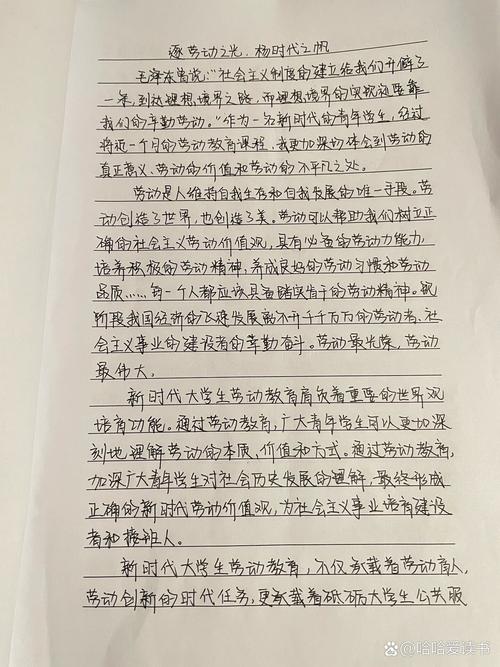 逐劳动之光，杨时代之帆
毛泽东曾说："社会主义制度的建立给我们开辟了
一条到达理想境界之路，而理想境界的实现还要靠
我们的辛勤劳动。"作为一名新时代的青年学生，经过
将近一个月的劳动教育课程，我更加深切体会到劳动的
真正意义、劳动的价值和劳动的不平凡之处。
劳动是人维持自我生存和自我发展的唯一手段。劳
动创造了世界，也创造了美。劳动可以帮助我们树立正
确的社会主义劳动价值观，具有必备的劳动力能力，
培养积极的劳动精神，养成良好的劳动习惯和劳动
品质……每一个人都应该具备踏实肯干的劳动精神。现
阶段我国经济的飞速发展离不开千千万万的劳动者、社
会主义事业的建设者的辛勤奋斗。劳动最光荣，劳动
最伟大。
新时代大学生劳动教育肩负着重要的世界观
培育功能。通过劳动教育，广大青年学生可以更加深
刻地理解劳动的本质、价值和方式。通过劳动教育，
加深广大青年学生对社会历史发展的理解，最终形成
正确的新时代劳动价值观，为社会主义事业培育建设
者和接班人。
新时代大学生劳动教育，不仅承载着劳动育人，
劳动创新的时代任务，更承载着砥砺大学生公共服
@哈哈爱读书